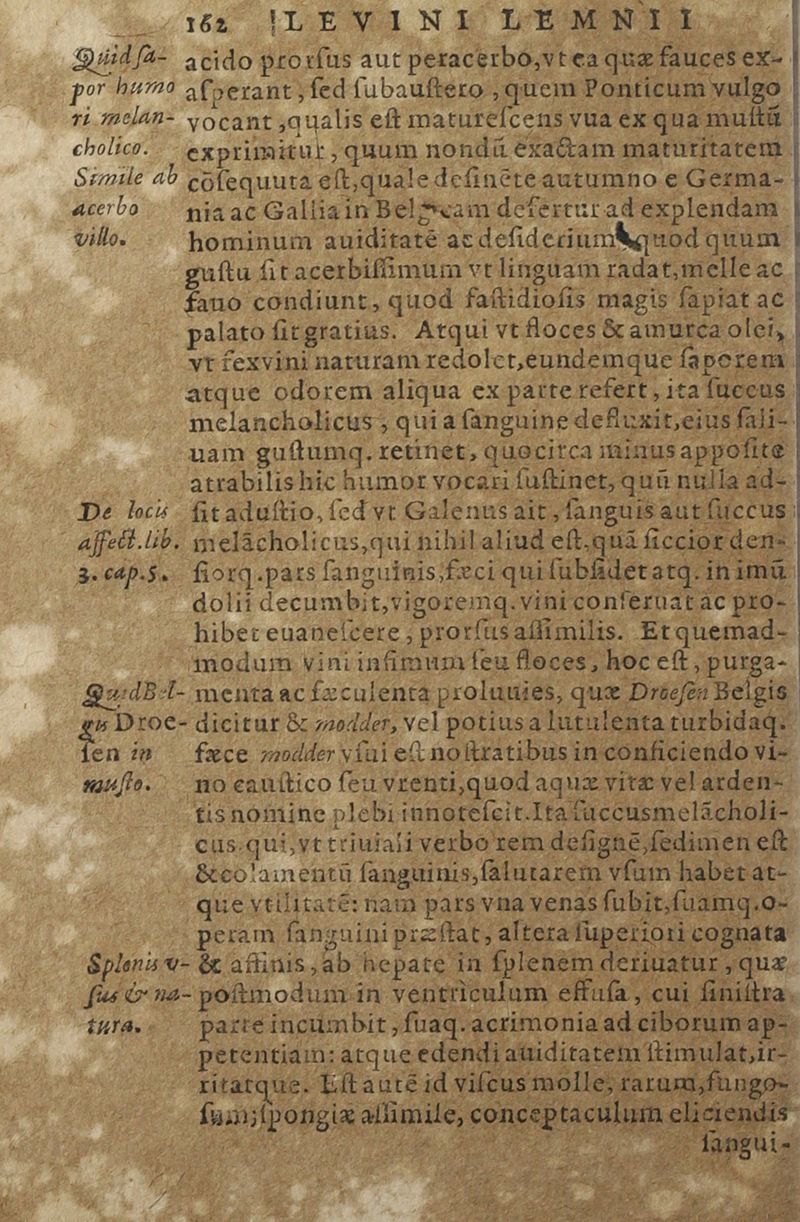 162 LEVINI LEMNII
Quid sa- acido prorſus aut peracerbo,vt ea quæ fauces ex-
por humo aſperant, ſed ſubauſtero, quem Ponticum vulgo
ri melan- vocant,qualis eſt matureſcens vua ex qua muſtũ
cholico. exprimitur, quum nondũ exactam maturitatem
Simile ab cõſequuta eſt,quale deſinẽte autumno e Germa-
acerbo nia ac Gallia in Belgicam defertur ad explendam
villo. hominum auiditatẽ ac deſiderium quod quum
guſtu ſit acerbiſſimum vt linguam radat,melle ac
fauo condiunt, quod faſtidioſis magis ſapiat ac
palato ſit gratius. Atqui vt floces & amurca olei,
vt fex vini naturam redolet,eundemque ſaporem
atque odorem aliqua ex parte refert, ita ſuccus
melancholicus, qui a ſanguine defluxit,eius ſali-
uam guſtumq. retinet, quocirca minus appoſite
atrabilis hic humor vocari ſuſtinet, quũ nulla ad-
De locis ſit aduſtio, ſed vt Galenus ait, ſanguis aut ſuccus
affect.lib. melãcholicus,qui nihil aliud eſt,quã ſiccior den-
3. cap.5. ſiorq.pars ſanguinis,fæci qui ſubſidet atq. in imũ
dolii decumbit,vigoremq. vini conſeruat ac pro-
hibet euaneſcere, prorſus aſſimilis. Et quemad-
modum vini infimum ſeu floces, hoc eſt, purga-
Quid Bel- menta ac fæculenta proluuies, quæ Droeſen Belgis
gis Droe- dicitur & modder, vel potius a lutulenta turbidaq.
ſen in fæce modder vſui eſt noſtratibus in conficiendo vi-
muſto. no cauſtico ſeu vrenti,quod aquæ vitæ vel arden-
tis nomine plebi innoteſcit.Ita ſuccus melãcholi-
cus.qui,vt triuiali verbo rem deſignẽ,ſedimen eſt
& colamentũ ſanguinis,ſalutarem vſum habet at-
que vtilitatẽ: nam pars vna venas ſubit,ſuamq.o-
peram ſanguini præſtat, altera ſuperiori cognata
Splenis v- & affinis, ab hepate in ſplenem deriuatur, quæ
ſus & na- poſtmodum in ventriculum effuſa, cui ſiniſtra
tura. parte incumbit, ſuaq. acrimonia ad ciborum ap-
petentiam: atque edendi auiditatem ſtimulat,ir-
ritatque. Eſt autẽ id viſcus molle, rarum,fungo-
ſum;ſpongiæ aſſimile, conceptaculum eliciendis
ſangui-